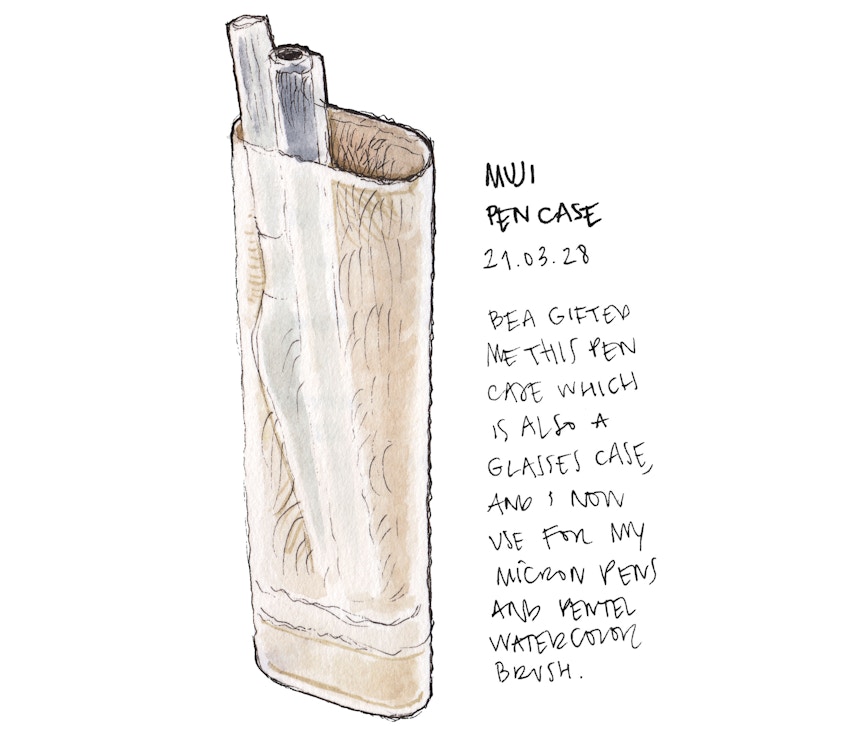 MUJI
PEN CASE
21.03.28
BEA GIFTED
ME THIS PEN
CASE WHICH
IS ALSO A
GLASSES CASE,
AND I NOW
USE FOR MY
MICRON PENS
AND PENTEL
WATERCOLOR
BRUSH.